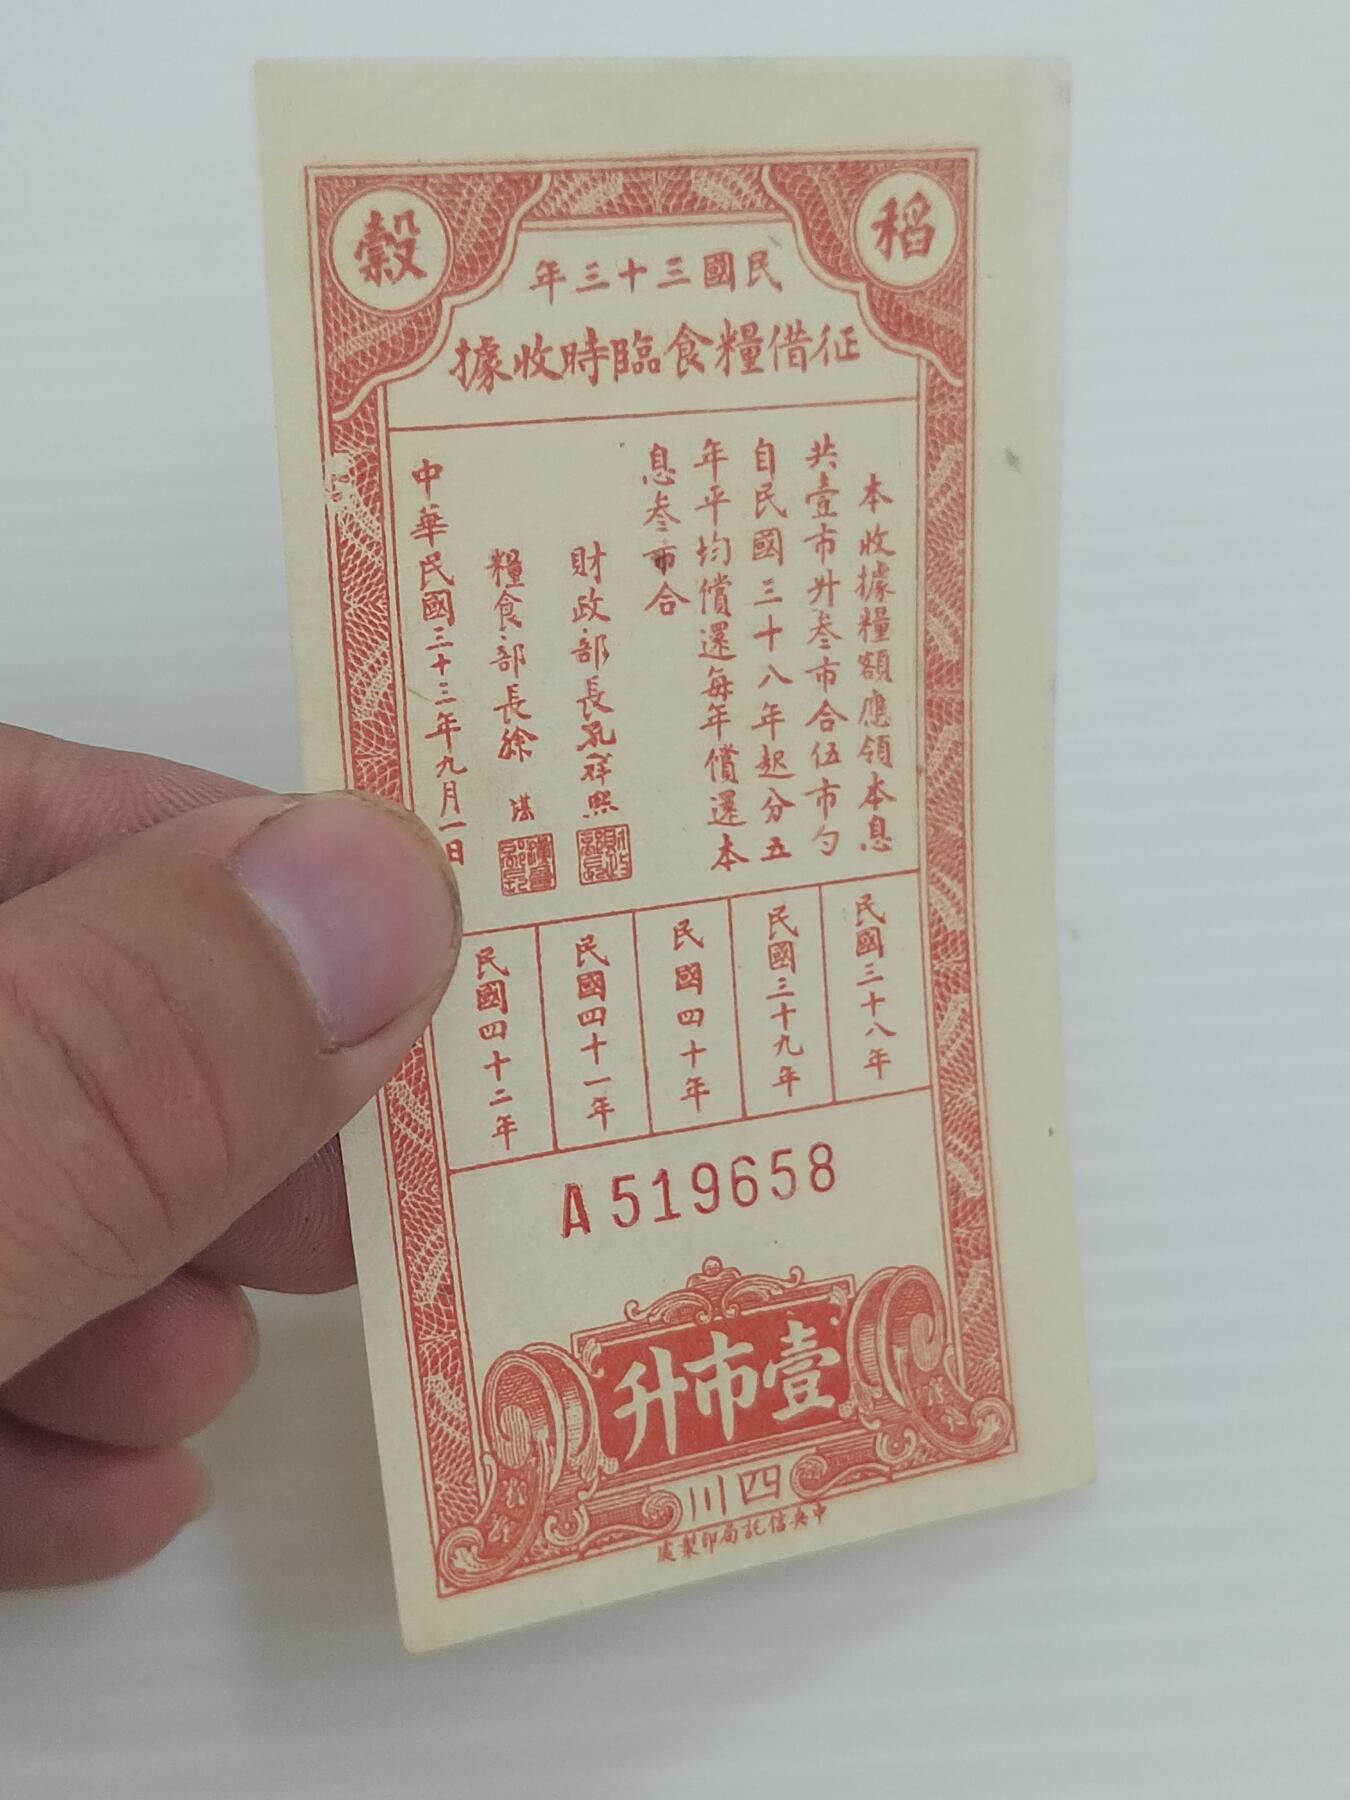 稻穀
民國三十三年
征借糧食臨時收據
本收據糧額應領本息
共壹市升叁市合伍市勺
自民國三十八年起分五
年平均償還每年償還本
息叁市合
財政部長孔祥熙
糧食部長徐堪
中華民國三十三年九月一日
民國三十八年
民國三十九年
民國四十年
民國四十一年
民國四十二年
A519658
壹市升
四川
中央信託局印製處